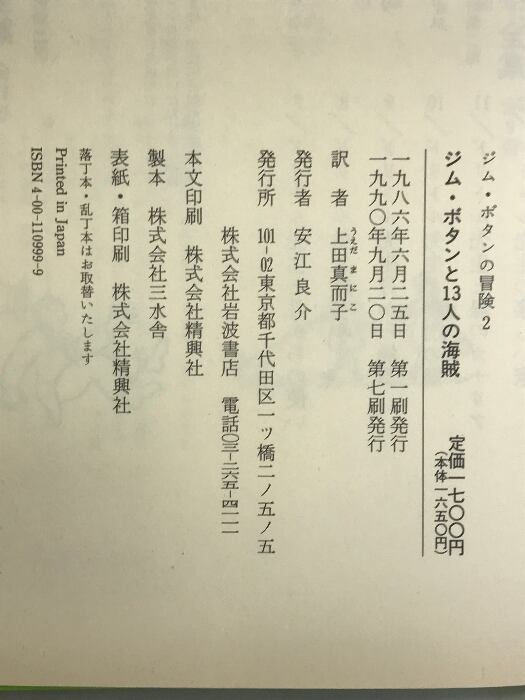 ジム・ボタンの冒険 2
ジム・ボタンと13人の海賊
定価一七〇〇円
(本体一六五〇円)
一九八六年六月二五日　第一刷発行
一九九〇年九月二〇日　第七刷発行
訳　者　上田真而子
うえだ　まにこ
発行者　安江良介
発行所　101-02東京都千代田区一ッ橋二ノ五ノ五
株式会社岩波書店　電話〇三-二六五-四一一一
本文印刷　株式会社精興社
製本　株式会社三水舎
表紙・箱印刷　株式会社精興社
落丁本・乱丁本はお取替いたします
Printed in Japan
ISBN 4-00-110999-9